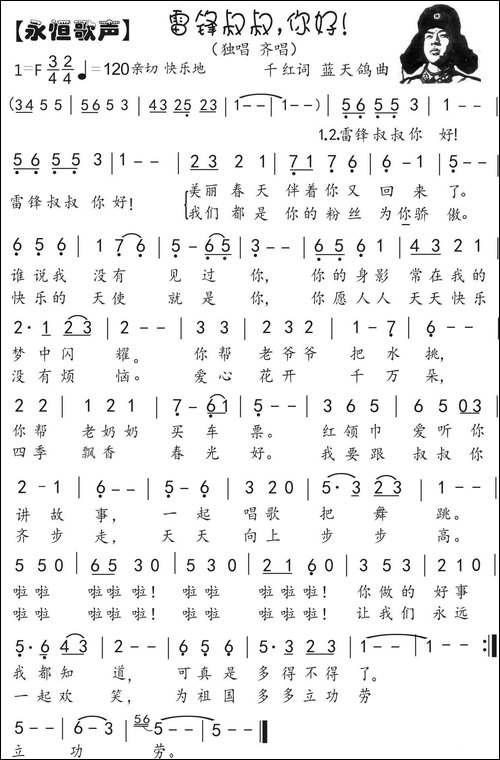 【永恒歌声】
雷锋叔叔,你好!
(独唱 齐唱)
1=F 3/4 2/4 ♩=120 亲切 快乐地
千红词 蓝天鸽曲
(3 4 5 5 | 5 6 5 3 | 4 3 2 5 2 3 | 1 - - | 1 - - ) | 5 6 5 5 3 | 2 - - |
1.2.雷锋叔叔你 好!
5 6 5 5 3 | 1 - - | 2 3 2 1 | 7 1 7 6 | 6 - 1 | 5 - - |
雷锋叔叔 你好! 美丽春天 伴着你又 回来了。
我们都是 你的粉丝 为你骄傲。
6 5 6 | 1 7 6 | 5 - 6 5 | 3 - - | 6 5 6 1 | 4 3 2 1 |
谁说我 没有 见过 你, 你的身影 常在我的
快乐的 天使 就是 你, 你愿人人 天天快乐
2 · 1 2 3 | 2 - - | 3 3 | 2 3 2 | 1 - 7 | 6 - - |
梦中闪 耀。 你帮 老爷爷 把水挑,
没有烦 恼。 爱心 花开 千万朵,
2 2 | 1 2 1 | 7 - 6 1 | 5 - - | 3 6 5 | 6 5 0 3 |
你帮 老奶奶 买车 票。 红领巾 爱听你
四季 飘香 春光 好。 我要跟 叔叔你
2 - 1 | 6 - - | 5 - 6 | 3 2 0 | 5 · 3 2 3 | 2 - - |
讲故 事, 一起 唱歌 把舞 跳。
齐步 走, 天天 向上 步步 高。
5 5 0 | 6 5 3 0 | 5 5 0 | 2 1 6 0 | 2 2 0 | 3 2 3 |
啦啦 啦啦啦! 啦啦 啦啦啦! 你做的 好事
啦啦 啦啦啦! 啦啦 啦啦啦! 让我们 永远
5 · 6 4 3 | 2 - - | 7 6 5 6 | 5 · 3 2 3 | 1 - - | 1 - - :|
我都知 道, 可真是 多得不得 了。
一起欢 笑, 为祖国 多多立功 劳
5 - - | 6 - 3 | 56 5 - - | 5 - - ‖
立 功 劳。